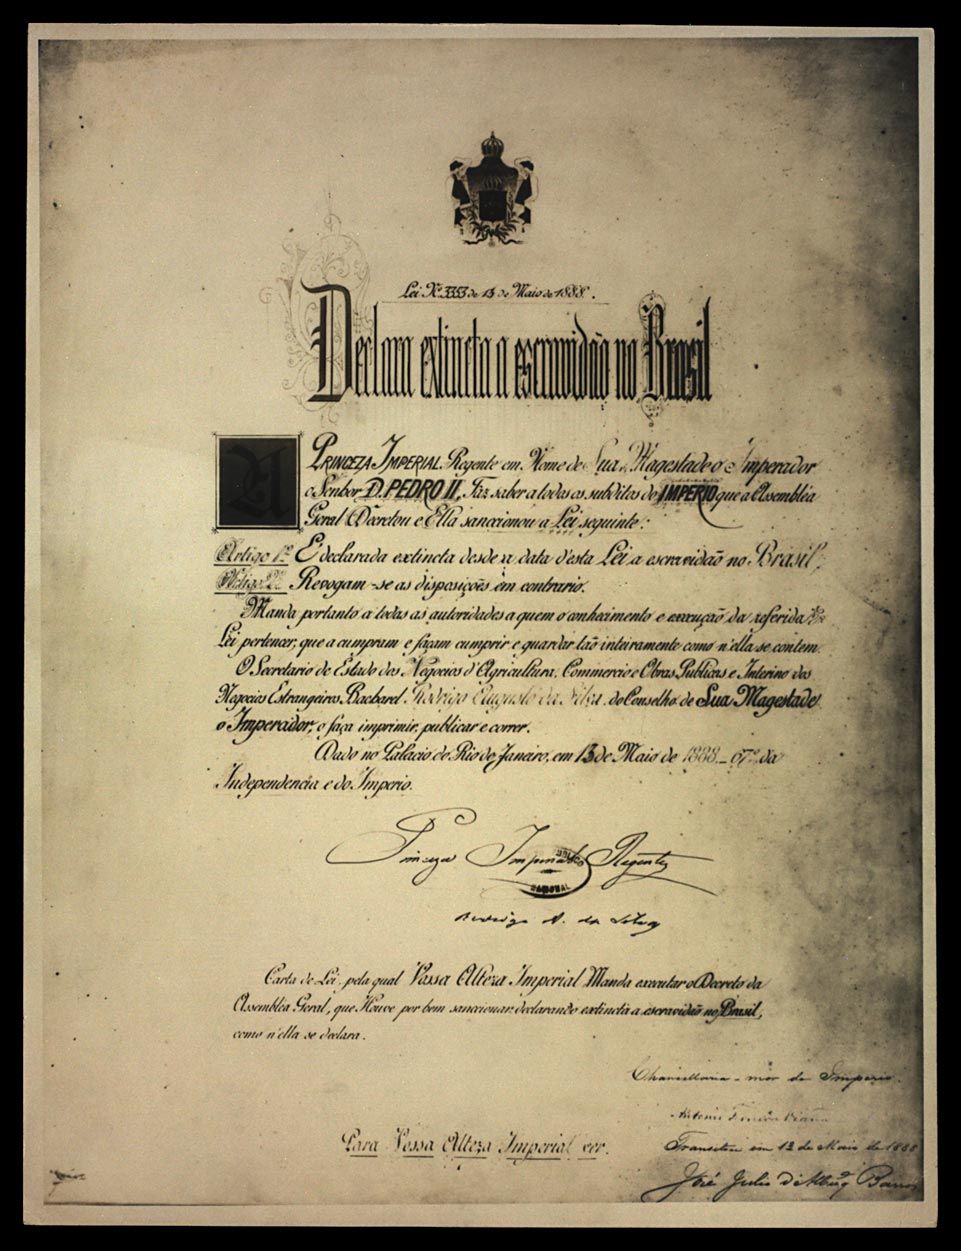 Lei Nº 3353 de 13 de Maio de 1888.
Declara extincta a escravidão no Brasil
A PRINCEZA IMPERIAL Regente em Nome de Sua Magestade o Imperador
o Senhor D. PEDRO II, Faz saber a todos os subditos do IMPERIO que a Assembléa
Geral Decretou e Ella sanccionou a Lei seguinte:
Artigo 1º É declarada extincta desde a data d'esta Lei a escravidão no Brasil.
Artigo 2º Revogam-se as disposições em contrario.
Manda portanto a todas as autoridades a quem o conhecimento e execução da referida
Lei pertencer, que a cumpram e façam cumprir e guardar tão inteiramente como n'ella se contem.
O Secretario de Estado dos Negocios d'Agricultura, Commercio e Obras Publicas e Interino dos
Negocios Estrangeiros, Bacharel Rodrigo Augusto da Silva, do Conselho de Sua Magestade
o Imperador, o faça imprimir, publicar e correr.
Dado no Palacio do Rio de Janeiro, em 13 de Maio de 1888_67º da
Independencia e do Imperio.
Princeza Imperial Regente
NACIONAL
Rodrigo A. da Silva
Carta de Lei, pela qual Vossa Alteza Imperial Manda executar o Decreto da
Assembléa Geral, que Houve por bem sanccionar declarando extincta a escravidão no Brasil,
como n'ella se declara.
Chancellaria-mor do Imperio.
Antonio Ferreira Vianna
Para Vossa Alteza Imperial ver.
Transitou em 13 de Maio de 1888
José Julio d'Albuqe Barros